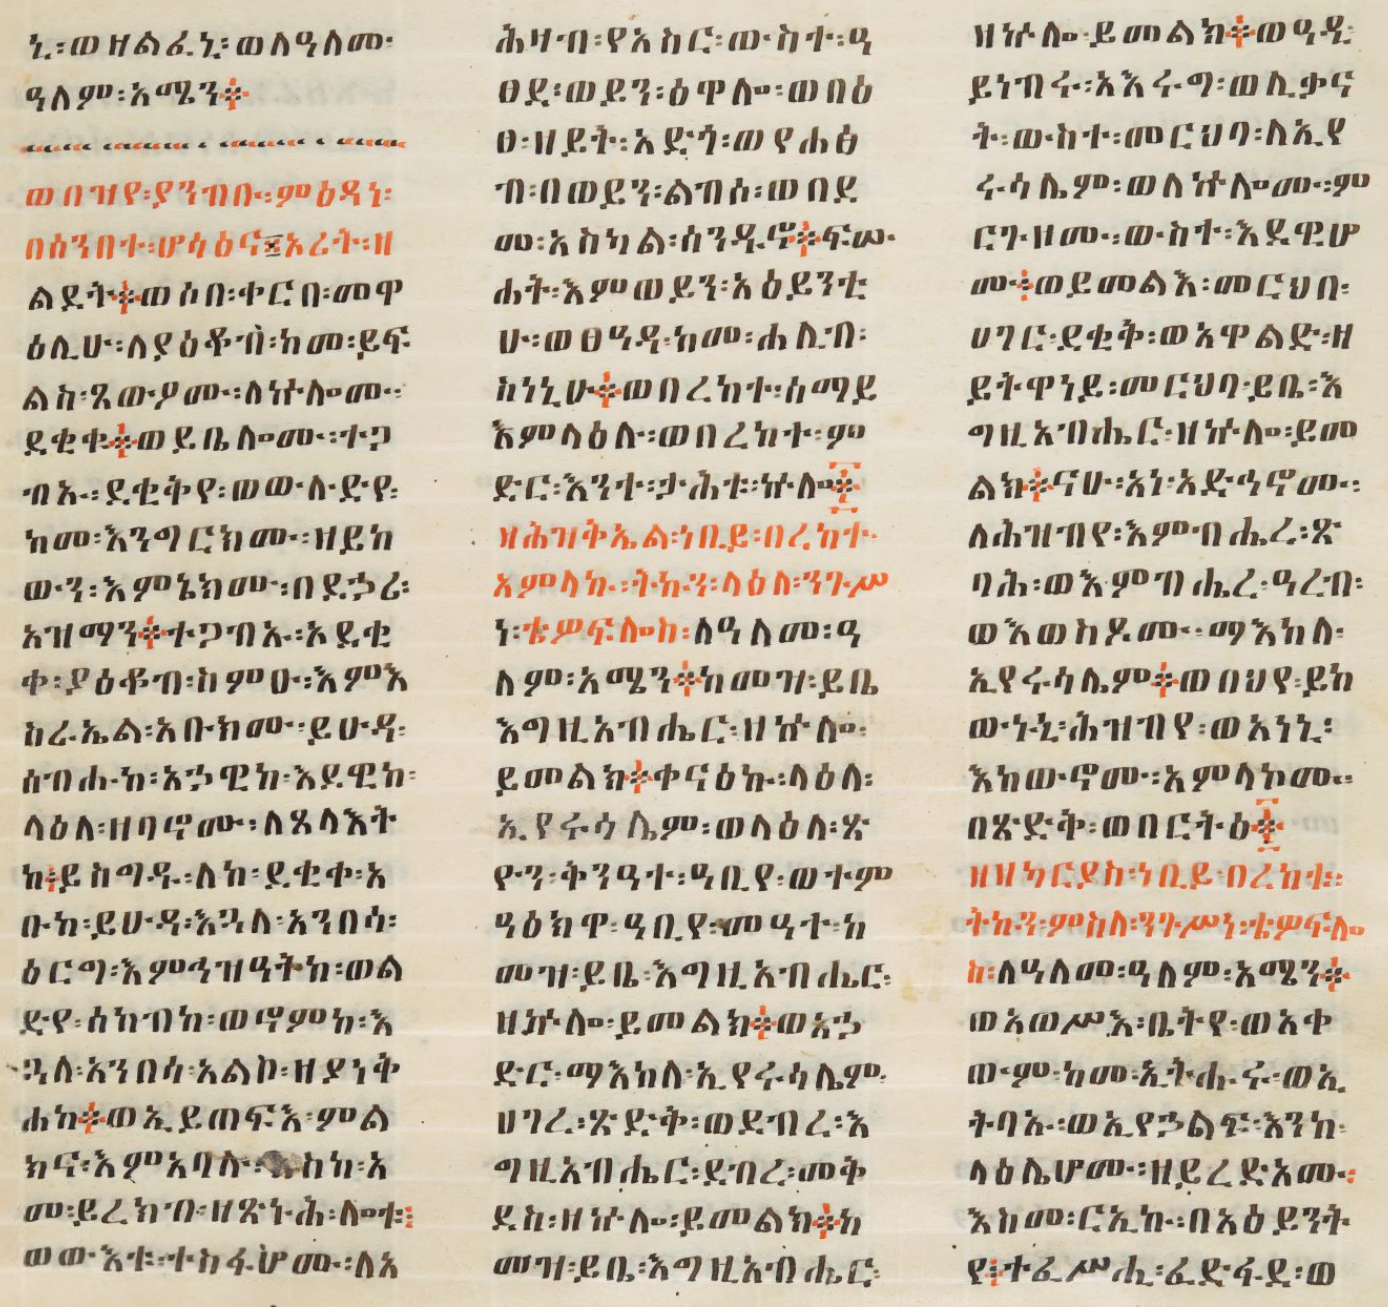 ኒ፡ወዘልፈኒ፡ወለዓለመ፡
ዓለም፡አሜን፨
ወበዝየ፡ያንብቡ፡ምዕዳነ፡
በሰንበተ፡ሆሳዕና፤አሪት፡ዘ
ልደት፨ወሶበ፡ቀርበ፡መዋ
ዕሊሁ፡ለያዕቆብ፡ከመ፡ይፍ
ልስ፡ጼውዖሙ፡ለኵሎሙ፡
ደቂቁ፨ወይቤሎሙ፡ተጋ
ብኡ፡ደቂቅየ፡ወውሉድየ፡
ከመ፡እንግርክሙ፡ዘይከ
ውን፡እምኔክሙ፡በደኃሪ፡
አዝማን፨ተጋብኡ፡አደቂ
ቀ፡ያዕቆብ፡ስምዑ፡እምእ
ስራኤል፡አቡክሙ፡ይሁዳ፡
ሰብሐከ፡አኃዊከ፡እደዊከ፡
ላዕለ፡ዘባኖሙ፡ለጸላእት
ከ፡ይሰግዱ፡ለከ፡ደቂቀ፡አ
ቡከ፡ይሁዳ፡እጓለ፡አንበሳ፡
ዕርግ፡እምኅዝዓትከ፡ወል
ድየ፡ሰከብከ፡ወኖምከ፡እ
ጓለ፡አንበሳ፡አልቦ፡ዘያነቅ
ሐከ፨ወኢይጠፍእ፡ምል
ክና፡እምአባሉ፡እስከ፡አ
መ፡ይረክብ፡ዘጽኑሕ፡ሎቱ፡
ወውእቱ፡ተስፋሆሙ፡ለአ
ሕዛብ፡የአስር፡ውስተ፡ዓ
ፀደ፡ወይን፡ዕዋሎ፡ወበዕ
ፀ፡ዘይት፡አድጎ፡ወየሐፅ
ብ፡በወይን፡ልብሶ፡ወበደ
መ፡አስካል፡ሰንዱኖ፨ፍሡ
ሐት፡እምወይን፡አዕይንቲ
ሁ፡ወፀዓዳ፡ከመ፡ሐሊብ፡
ስነኒሁ፨ወበረከተ፡ሰማይ
እምላዕሉ፡ወበረከተ፡ም
ድር፡እንተ፡ታሕቱ፡ኵሎ፨
ዝሕዝቅኤል፡ነቢይ፡በረከተ፡
አምላኩ፡ትኩን፡ላዕለ፡ንጉሥ
ነ፡ቴዎፍሎስ፡ለዓለመ፡ዓ
ለም፡አሜን፨ከመዝ፡ይቤ
እግዚአብሔር፡ዘኵሎ፡
ይመልክ፨ቀናዕኩ፡ላዕለ፡
ኢየሩሳሌም፡ወላዕለ፡ጽ
ዮን፡ቅንዓተ፡ዓቢየ፡ወተም
ዓዕክዋ፡ዓቢየ፡መዓተ፡ከ
መዝ፡ይቤ፡እግዚአብሔር፡
ዘኵሎ፡ይመልክ፨ወእኃ
ድር፡ማእከለ፡ኢየሩሳሌም፡
ሀገረ፡ጽድቅ፡ወደብረ፡እ
ግዚአብሔር፡ደብረ፡መቅ
ደስ፡ዘኵሎ፡ይመልክ፨ከ
መዝ፡ይቤ፡እግዚአብሔር፡
ዘኵሎ፡ይመልክ፨ወዓዲ፡
ይነብሩ፡አእሩግ፡ወሊቃና
ት፡ውስተ፡መርህባ፡ለኢየ
ሩሳሌም፡ወለኵሎሙ፡ም
ርጉዘሙ፡ውስተ፡እደዊሆ
ሙ፨ወይመልእ፡መርህበ፡
ሀገር፡ደቂቅ፡ወአዋልድ፡ዘ
ይትዋነይ፡መርህባ፡ይቤ፡እ
ግዚአብሔር፡ዘኵሎ፡ይመ
ልክ፨ናሁ፡አነ፡ኣድኅኖሙ፡
ለሕዝብየ፡እምብሔረ፡ጽ
ባሕ፡ወእምብሔረ፡ዓረብ፡
ወእወስዶሙ፡ማእከለ፡
ኢየሩሳሌም፨ወበህየ፡ይከ
ውኑኒ፡ሕዝብየ፡ወአነኒ፡
እከውኖሙ፡አምላኮሙ፡
በጽድቅ፡ወበርትዕ፨
ዘዝካርያስ፡ነቢይ፡በረከቱ፡
ትኩን፡ምስለ፡ንጉሥነ፡ቴዎፍሎ
ስ፡ለዓለመ፡ዓለም፡አሜን፨
ወአወሥእ፡ቤትየ፡ወአቀ
ውም፡ከመ፡ኢትሑሩ፡ወኢ
ትባኡ፡ወኢየኃልፍ፡እንከ፡
ላዕሌሆሙ፡ዘይረድአሙ፡
እስመ፡ርኢኩ፡በአዕይንት
የ፨ተፈሥሒ፡ፈድፋደ፡ወ